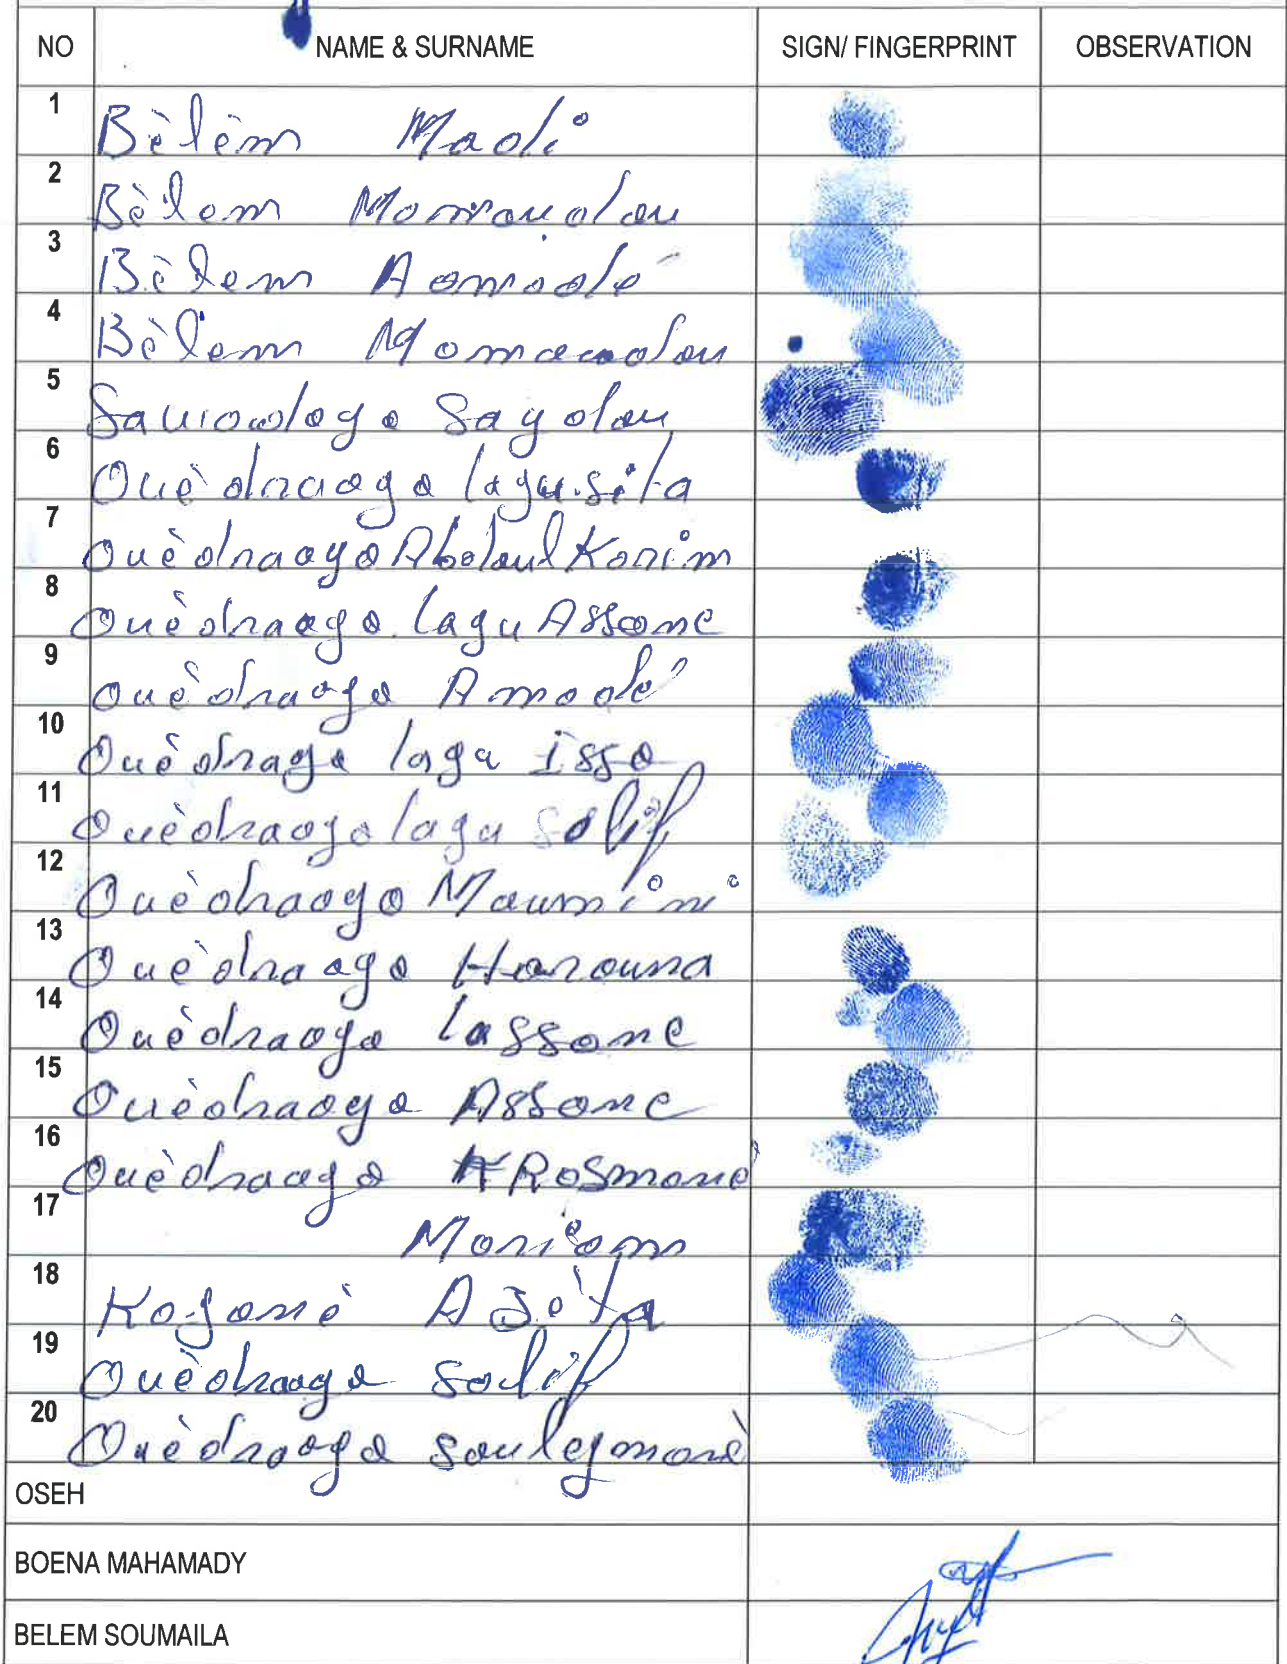 NO NAME & SURNAME SIGN/ FINGERPRINT OBSERVATION
1 Bèlèm Madi
2 Bèlem Mamoudou
3 Bèlem Amadé
4 Bèlem Mamoudou
5 Sawadogo Saydou
6 Ouèdraogo lagu.sita
7 Ouèdraogo Abdoul Karim
8 Ouèdraogo lagu Assane
9 Ouèdraogo Amadé
10 Ouèdrago laga Issa
11 Ouèdraogo laga Salif
12 Ouèdraogo Moumini
13 Ouèdraogo Harouna
14 Ouèdraogo lassane
15 Ouèdraogo Assane
16 Ouèdraogo Rosmane
17 Mariam
18 Kogonè
19 Ouèdraogo salif
20 Ouèdraogo souleymanè
OSEH
BOENA MAHAMADY
BELEM SOUMAILA